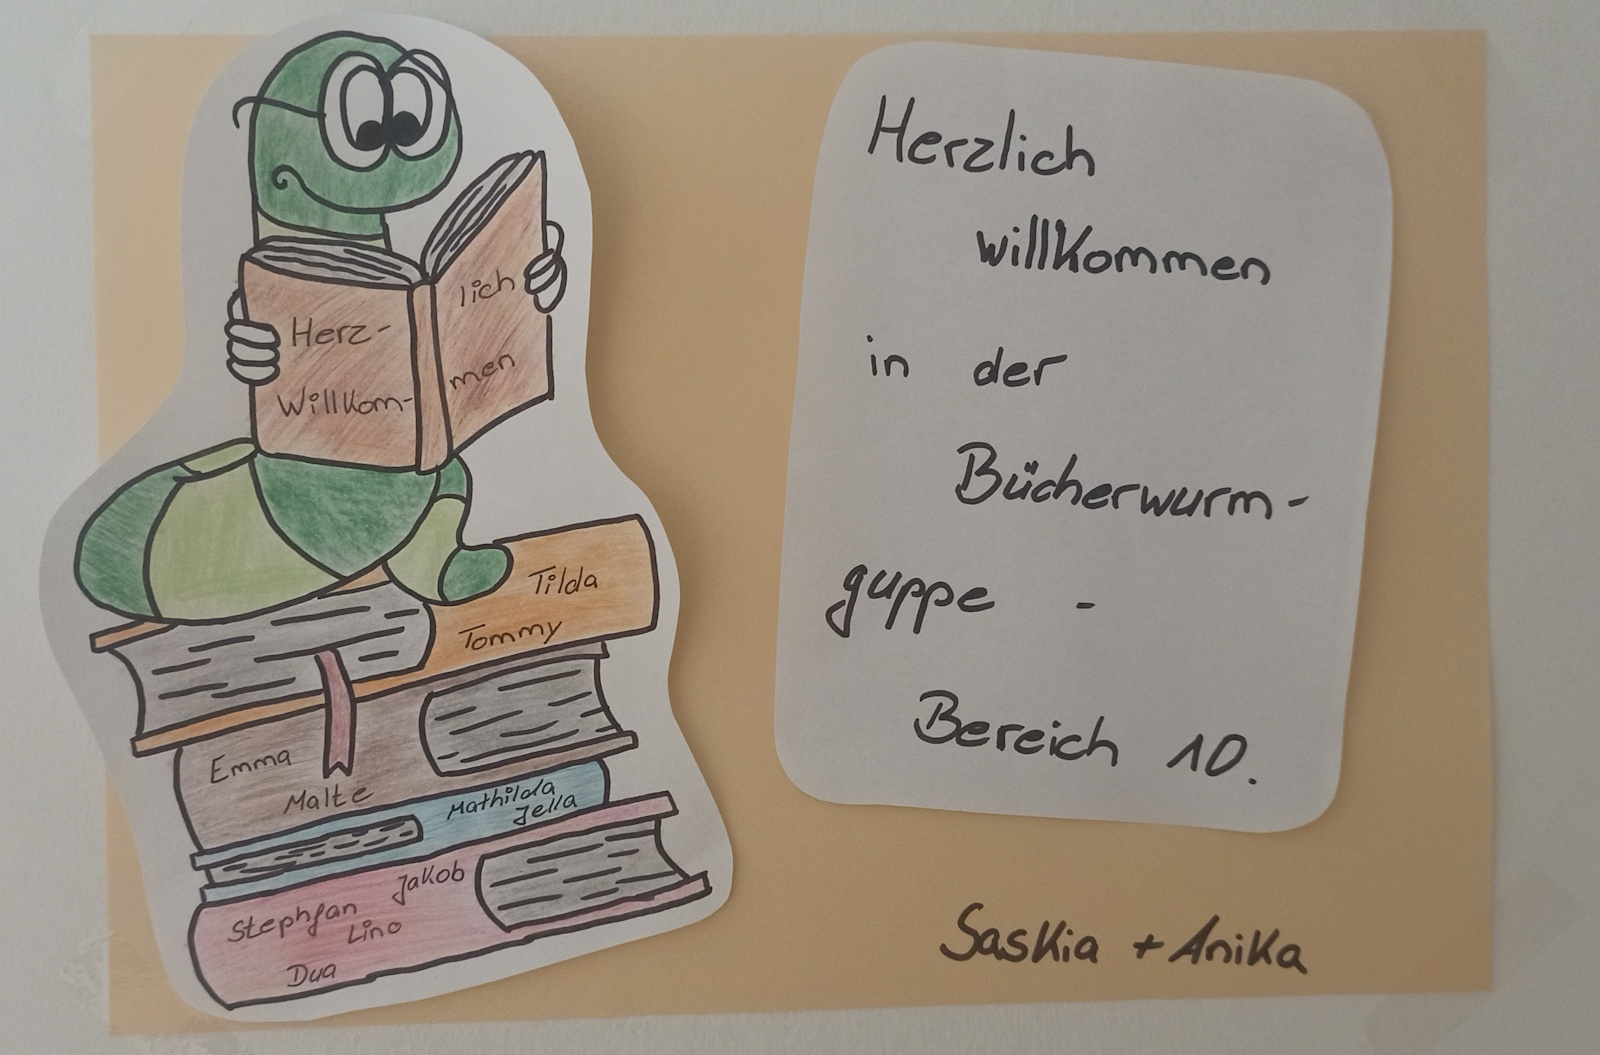 Herz-
Willkom-
lich
men
Tilda
Tommy
Emma
Malte
Mathilda
Jella
Jakob
Stephfan
Lino
Dua
Herzlich
willkommen
in der
Bücherwurm-
guppe -
Bereich 10.
Saskia + Anika